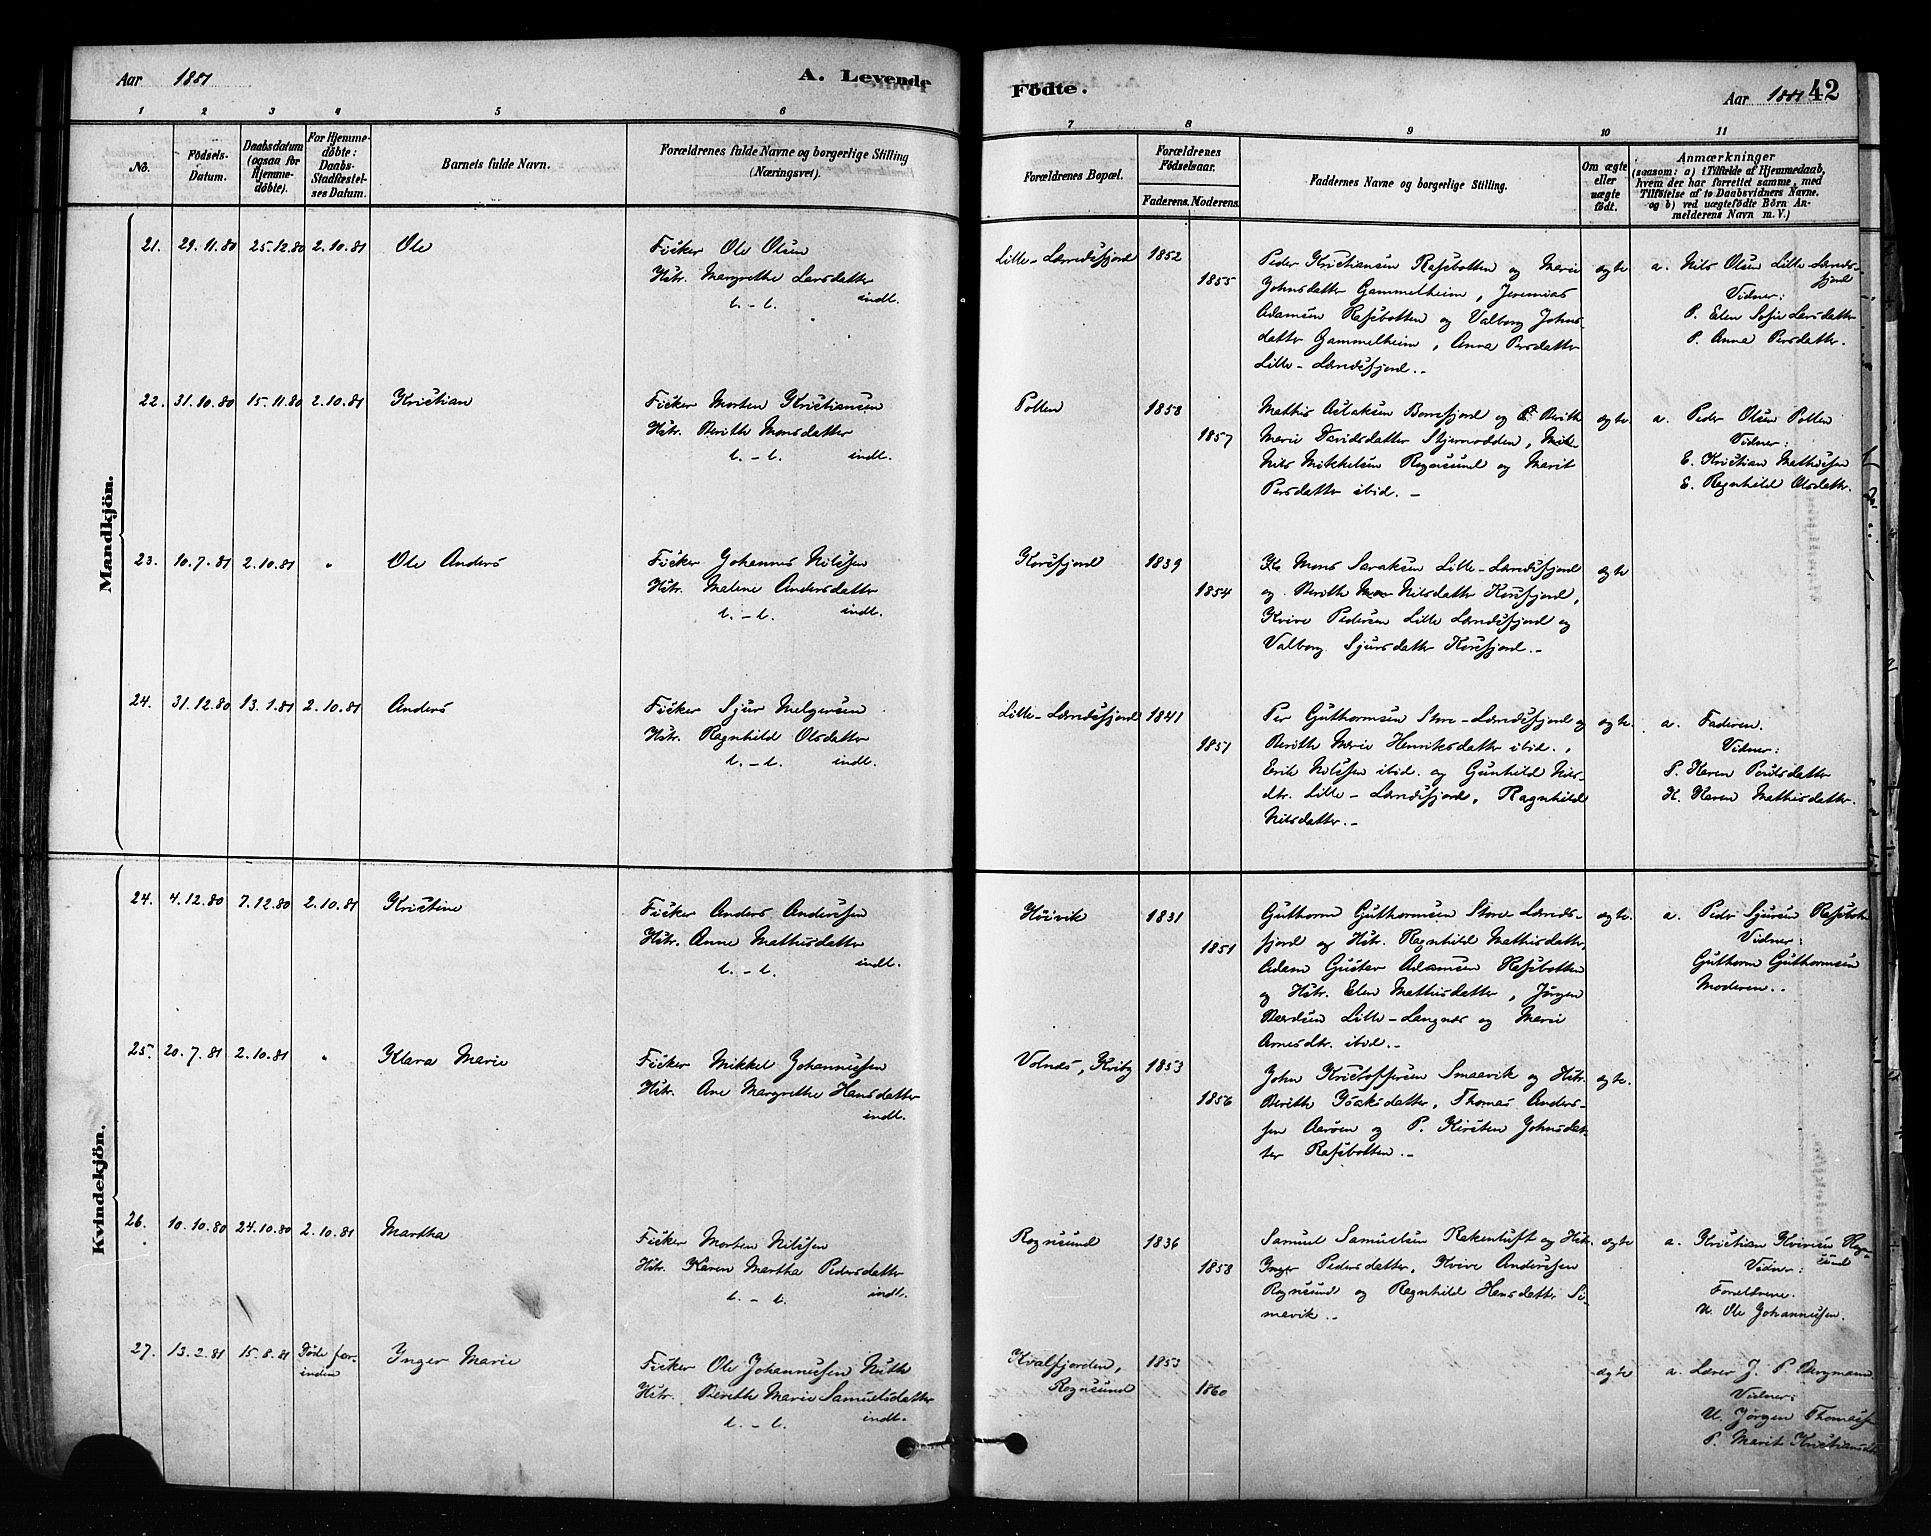 Aar 1881
A. Levende
Födte.
Aar 1881 42
1 2 3 4 5 6 7 8 9 10 11
No.
Födsels-
Datum.
Daabsdatum
(ogsaa for
Hjemme-
döbte).
For Hjemme-
döbte:
Daabs-
Stadfæstel-
ses Datum.
Barnets fulde Navn.
Forældrenes fulde Navne og borgerlige Stilling
(Næringsvei).
Forældrenes Bopæl.
Forældrenes
Födselsaar.
Faderens. Moderens.
Faddernes Navne og borgerlige Stilling.
Om ægte
eller
uægte
födt.
Anmærkninger
(saasom: a) i Tilfælde af Hjemmedaab,
hvem der har forrettet samme, med
Tilföielse af to Daabsvidners Navne.
og b) ved uægtefödte Börn An-
melderens Navn m. V.)
Mandkjön.
21. 29.11.80 25.12.80 2.10.81 Ole
Fisker Ole Olsen
Hstr. Margrethe Larsdatter
l. - l. indl.
Lille-Lærredsfjord 1852
1855
Peder Kristiansen Rafsbotten og Marie
Johnsdatter Gammelheim, Jeremias
Adamsen Rafsbotten og Valborg Johns-
datter Gammelheim, Anna Persdatter
Lille-Lærredsfjord.-
ægte
a. Nils Olsen Lille Lærreds-
fjord
Vidner:
P. Elen Sofie Larsdatter
P. Anna Persdatter.
22. 31.10.80 15.11.80 2.10.81 Kristian
Fisker Morten Kristiansen
Hstr. Berith Monsdatter
l. - l. indl.
Pollen 1858
1857
Mathis Aslaksen Borrefjord og Berith
Marie Davidsdatter Stjernodden,
Nils Mikkelsen Rognsund og Marit
Persdatter ibid.-
ægte
a. Peder Olsen Pollen
Vidner:
E. Kristian Mathissen
E. Ragnhild Olsdattr.
23. 10.7.81 2.10.81 " Ole Anders
Fisker Johannes Nilssen
Hstr. Malene Andersdatter
l. - l. indl.
Korsfjord 1839
1854
Mons Saraksen Lille-Lærredsfjord
og Berith Nilsdatter Korsfjord,
Kvive Pedersen Lille Lærredsfjord og
Valborg Sjursdatter Korsfjord.-
ægte
24. 31.12.80 13.1.81 2.10.81 Anders
Fisker Sjur Melgersen
Hstr. Ragnhild Olsdatter
l. - l. indl.
Lille-Lærredsfjord 1841
1851
Per Guthormsen Store-Lærredsfjord og
Berith Marie Henriksdatter ibid.,
Erik Nilssen ibid. og Gunhild Nils-
dtr. Lille-Lærredsfjord, Ragnhild
Nilsdatter.-
ægte.
a. Faderen.
Vidner:
P. Karen Poulsdatter
H. Karen Mathisdatter.
Kvindekjön.
24. 4.12.80 7.12.80 2.10.81 Kristine
Fisker Anders Anderssen
Hstr. Anne Mathisdatter
l. - l. indl.
Höivik 1831
1851
Guthorm Guthormsen Store Lærreds-
fjord og Hstr. Ragnhild Mathisdatter,
Adam Gustav Adamsen Rafsbotten
og Hstr. Elen Mathisdatter, Jörgen
Bærdsen Lille-Langnes og Marie
Arnesdtr. ibid.-
ægte.
a. Peder Sjursen Rafsbotn
Vidner:
Guthorm Guthormsen
Moderen.
25. 20.7.81 2.10.81 " Klara Marie
Fisker Mikkel Johannessen
Hstr. Ane Margrethe Hansdatter
indl.
Volnes, Kviby 1853
1856
John Kristoffersen Smaavik og Hstr.
Berith Isaksdatter, Thomas Anders-
sen Aaröen og P. Kirsten Johnsdat-
ter Rafsbotten.-
ægte.
26. 10.10.80 24.10.80 2.10.81 Martha
Fisker Morten Nilssen
Hstr. Karen Martha Pedersdatter
l. - l. indl.
Rognsund 1836
1858
Samuel Samuelsen Rakenluft og Hstr.
Inger Pedersdatter, Kvive Anderssen
Rognsund og Ragnhild Hansdatter Si-
mavik.-
ægte
a. Kristian Kvivesen Rogn-
sund
Vidner:
Forældrene.
U. Ole Johannessen.
27. 13.2.81 15.8.81 Döde for-
inden
Inger Marie
Fisker Ole Johannessen Muth
Hstr. Berith Marie Samuelsdatter
l. - l. indl.
Kvalfjorden,
Rognsund
1853
1860
ægte
a. Lærer J. P. Bergmann
Vidner:
U. Jörgen Thomassen
P. Marit Kristiansdtr